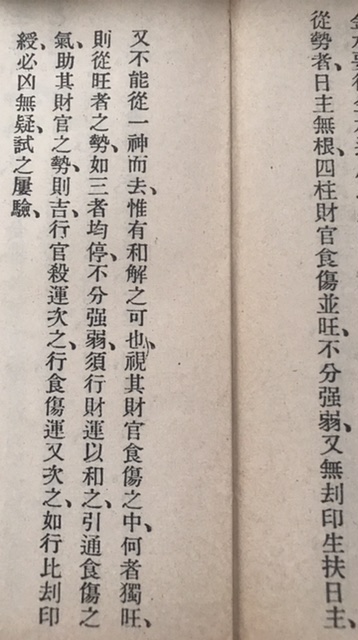 從勢者日主無根、四柱財官食傷並旺、不分强弱、又無刦印生扶日主、
又不能從一神而去、惟有和解之可也、視其財官食傷之中、何者獨旺、
則從旺者之勢、如三者均停、不分强弱、須行財運以和之、引通食傷之
氣、助其財官之勢、則吉、行官殺運次之、行食傷運又次之、如行比刦印
綬、必凶無疑、試之屢驗、